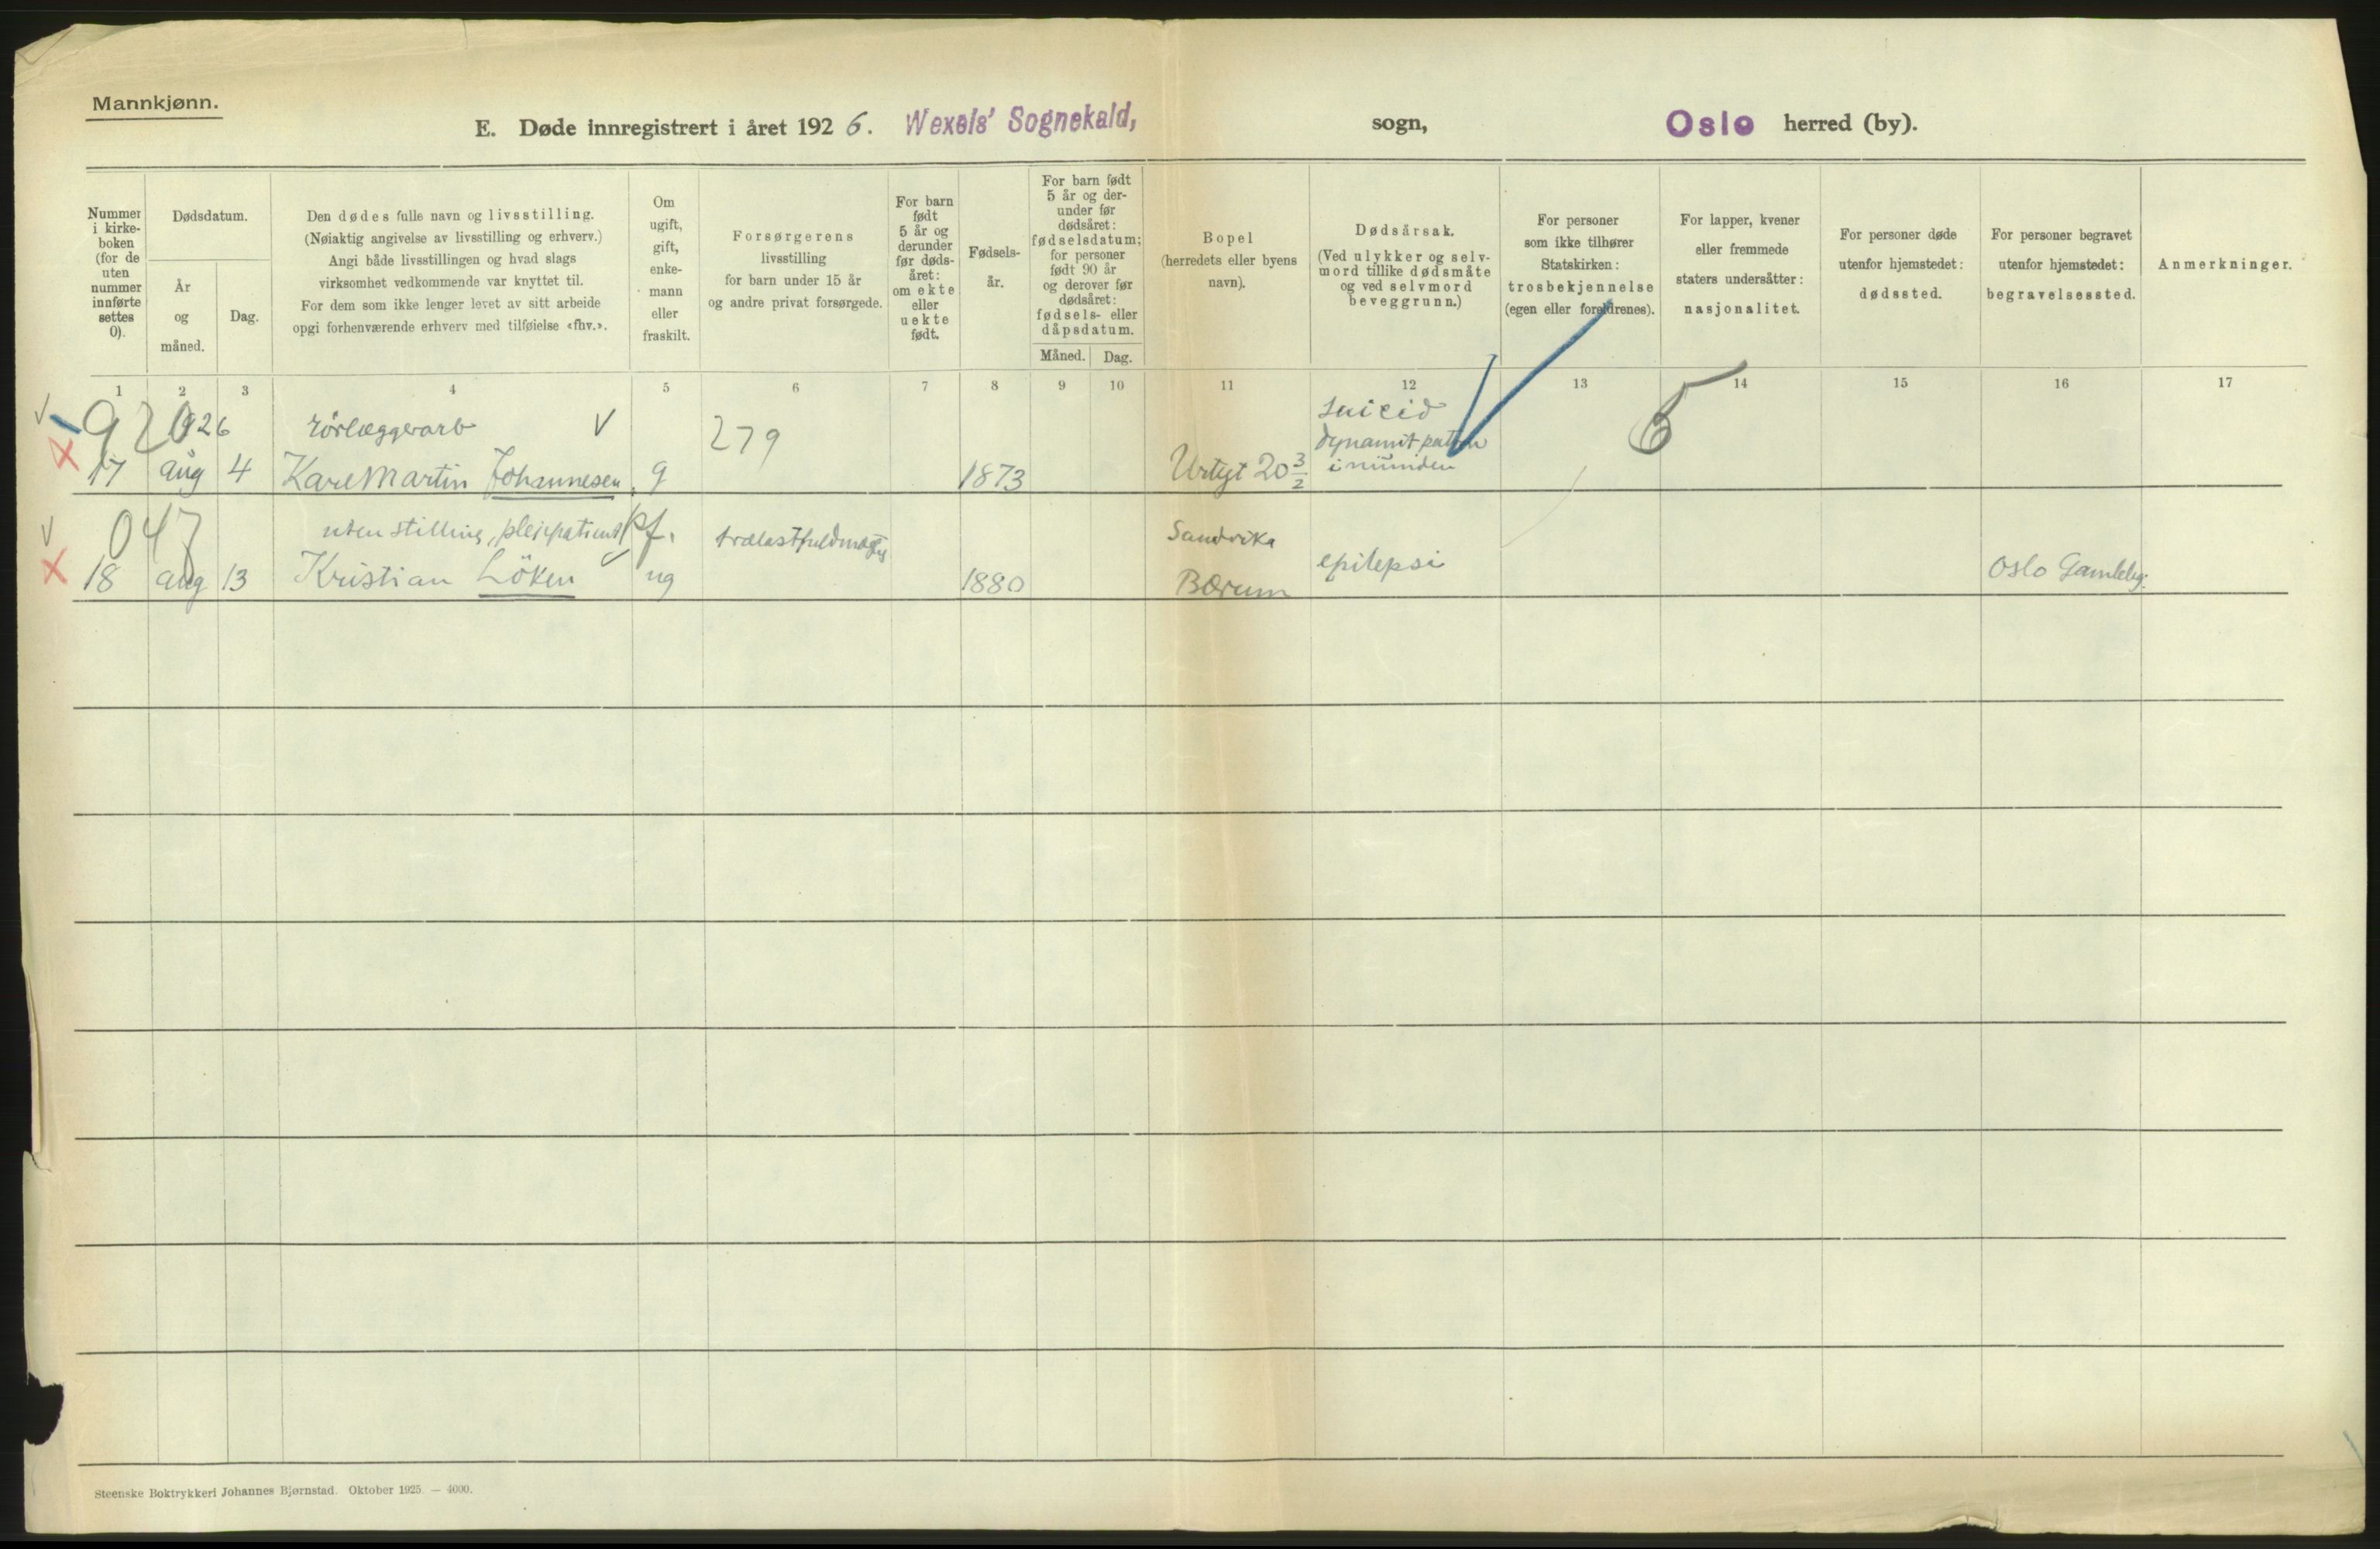 Mannkjønn.
E. Døde innregistrert i året 1926. Wexels' Sognekald, sogn, Oslo herred (by).
Nummer
i kirke-
boken
(for de
uten
nummer
innførte
settes
0).
Dødsdatum.
År
og
måned.
Dag.
Den dødes fulle navn og livsstilling.
(Nøiaktig angivelse av livsstilling og erhverv.)
Angi både livsstillingen og hvad slags
virksomhet vedkommende var knyttet til.
For dem som ikke lenger levet av sitt arbeide
opgi forhenværende erhverv med tilføielse «fhv.».
Om
ugift,
gift,
enke-
mann
eller
fraskilt.
Forsørgerens
livsstilling
for barn under 15 år
og andre privat forsørgede.
For barn
født
5 år og
derunder
før døds-
året:
om ekte
eller
uekte
født.
Fødsels-
år.
For barn født
5 år og der-
under før
dødsåret:
fødselsdatum;
for personer
født 90 år
og derover før
dødsåret:
fødsels- eller
dåpsdatum.
Måned. Dag.
Bopel
(herredets eller byens
navn).
Dødsårsak.
(Ved ulykker og selv-
mord tillike dødsmåte
og ved selvmord
beveggrunn.)
For personer
som ikke tilhører
Statskirken:
trosbekjennelse
(egen eller foreldrenes).
For lapper, kvener
eller fremmede
staters undersåtter:
nasjonalitet.
For personer døde
utenfor hjemstedet:
dødssted.
For personer begravet
utenfor hjemstedet:
begravelsessted.
Anmerkninger.
1 2 3 4 5 6 7 8 9 10 11 12 13 14 15 16 17
920 1926 rörlæggerarb 279 suicid 5
dynamit patron
17 aug 4 Karl Martin Johannesen g 1873 Urtegt 20 3/2 i munden
047 uten stilling, pleiepatient pf. trælastfuldmægtig Sandvika
18 aug 13 Kristian Löken ug 1880 Bærum epilepsi Oslo Gamleby.
Steenske Boktrykkeri Johannes Bjørnstad. Oktober 1925. — 4000.